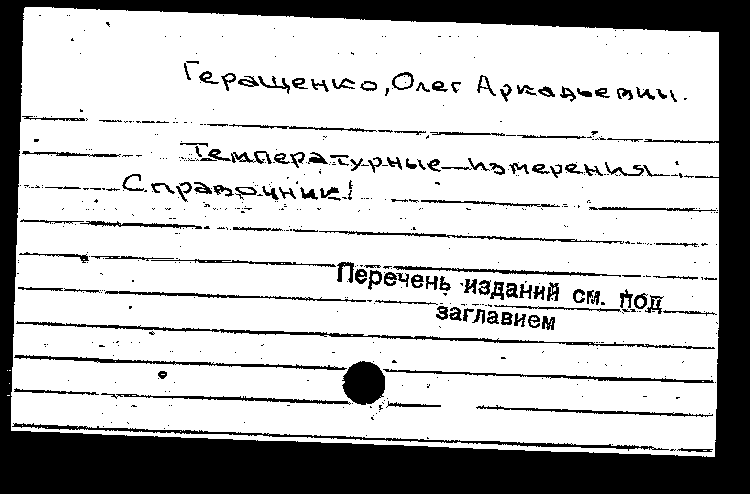 Геращенко, Олег Аркадьевич.
Температурные измерения :
Справочник!
Перечень изданий см. под
заглавием